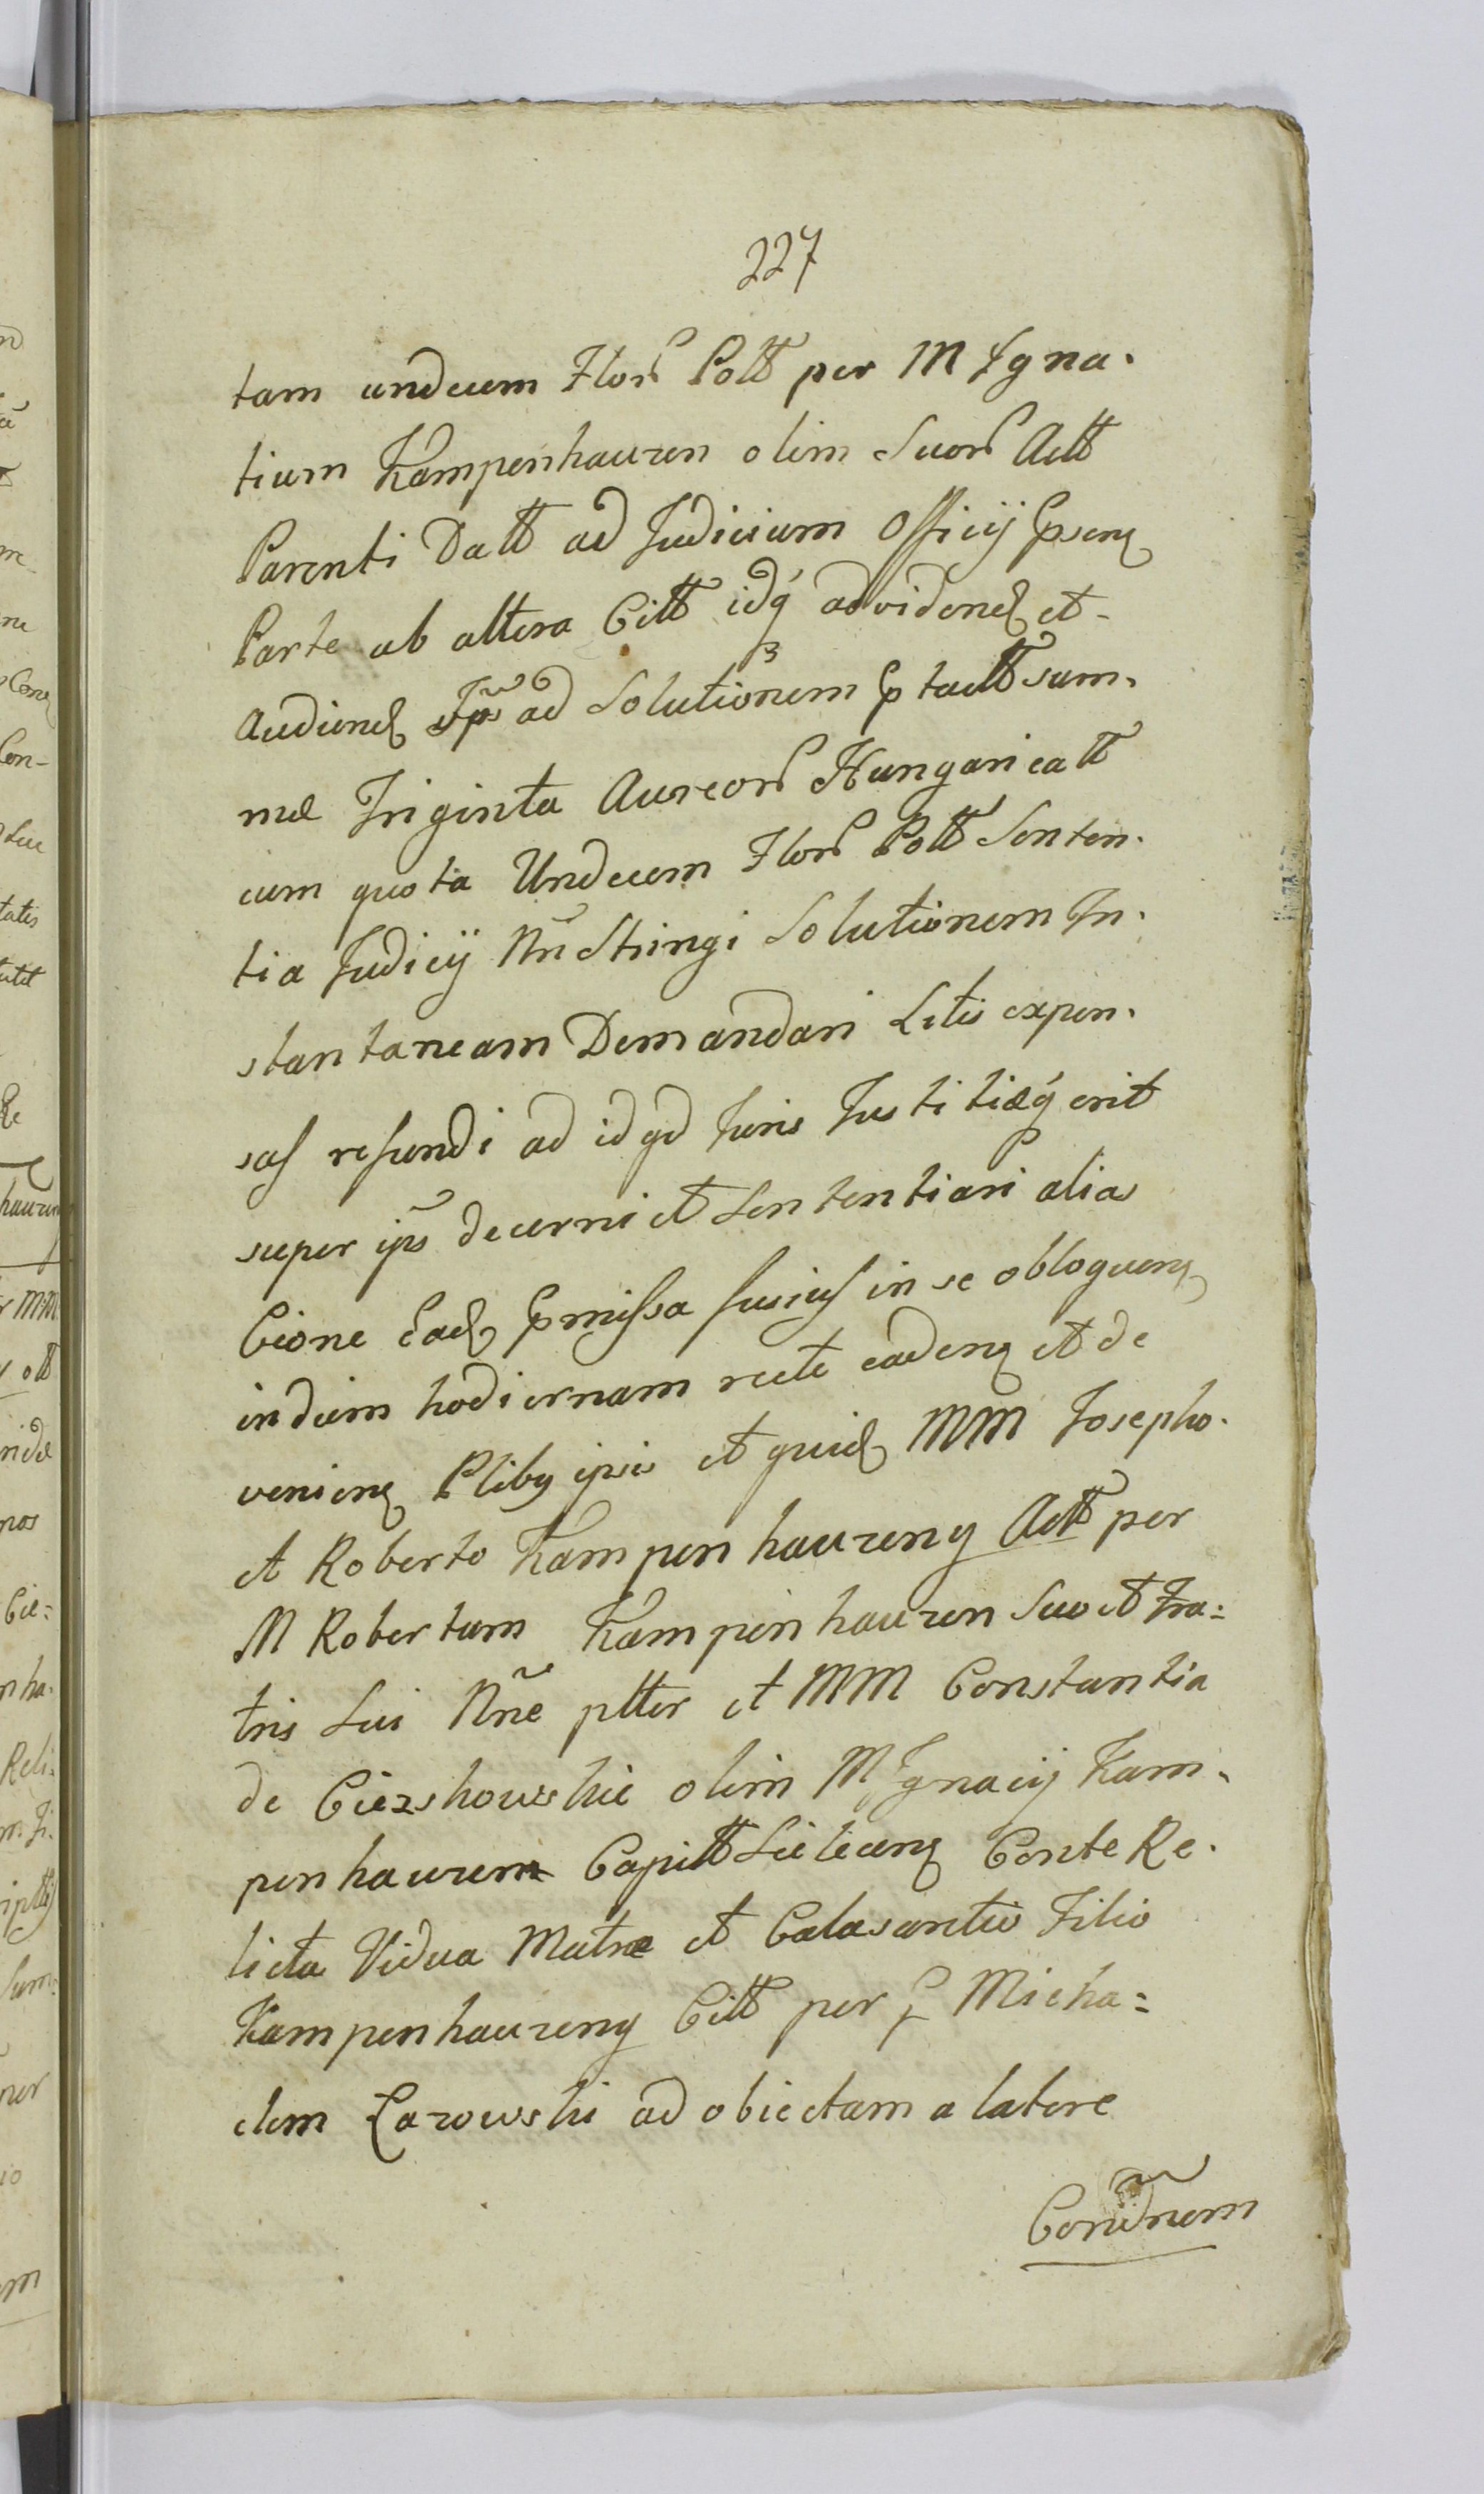 227
tam undecim Flor Poll per M Igna-
tium Kampenhauzen olim Suor Actt
Parenti Datt ad Judicium Officij Psens
Parte ab altera Citt idq advidend et
Audiend Ips ad Solutionem Ptactt sum-
mæ Triginta Aureor Hungaricall
cum quota Undecem Flor Poll Senten-
tia Judicij Nri Stringi Solutionem In-
stantaneam Demandari Litis expen-
sas refundi ad id qd Juris Justitiæq erit
super ips decerni et Sententiari alias
Cione Ead Pmissa fusius in se obloquens
in diem hodiernam recte cadens et de
veniens Ptibg ipsis et quid MM Josepho
et Roberto Kampenhauzeng Actt per
M Robertum Kampenhauzen Suo et Fra=
tris Sui Nne ptter et MM Constantia
de Cieszkowskie olim M Ignacij Kam-
penhauzem Capitt Conte Re-
licta Vidua Matre et Calasantio Filio
Kampenhauzeng Citt per G Micha=
elem Lazowski ad obiectam a latere
Condnem